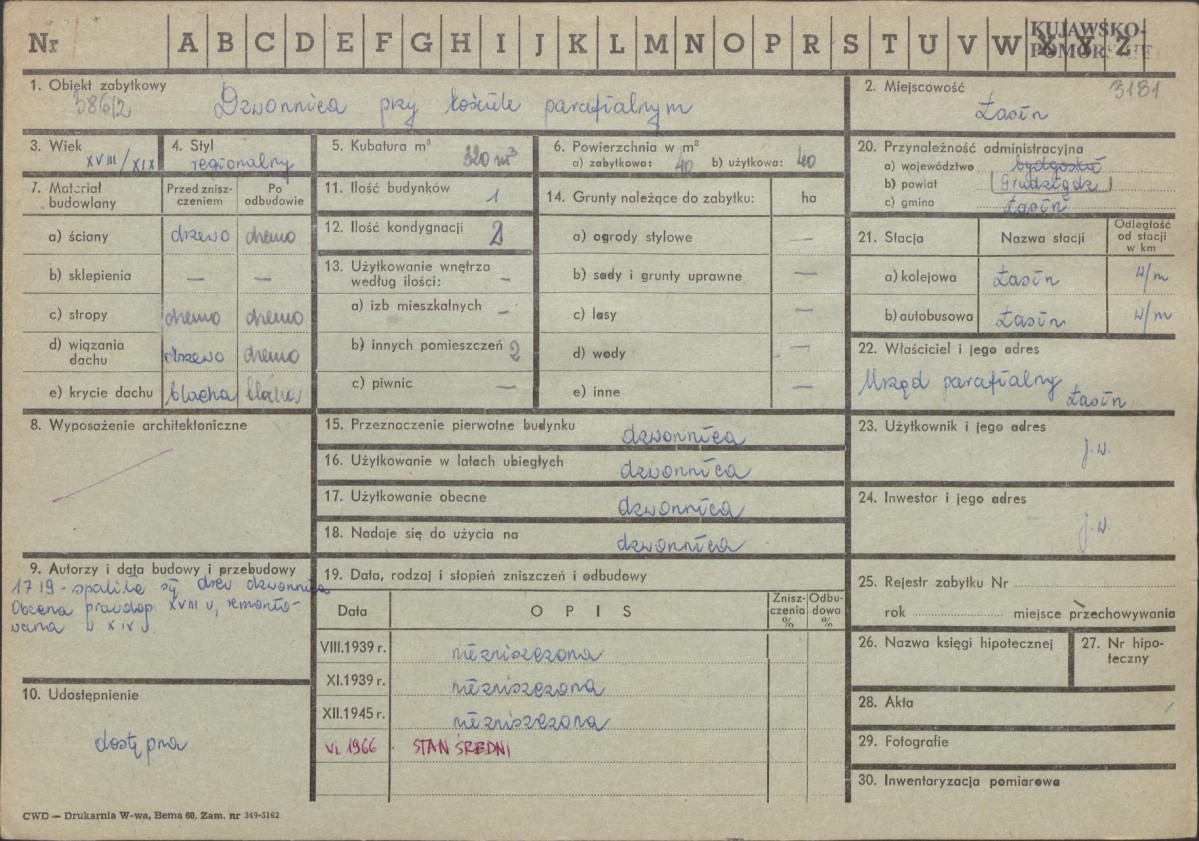 Nr A B C D E F G H I J K L M N O P R S T U V W X Y Z
KUJAWSKO-
POMORSKIE
1. Obiekt zabytkowy
386/2
Dzwonnica przy kościele parafialnym
2. Miejscowość
3181
Łasin
3. Wiek
XVIII/XIX
4. Styl
regionalny
5. Kubatura m³
320 m³
6. Powierzchnia w m²
a) zabytkowa: 40 b) użytkowa: 40
20. Przynależność administracyjna
a) województwo bydgoskie
b) powiat Grudziądz
c) gmina Łasin
7. Materiał budowlany
Przed zniszczeniem
Po odbudowie
a) ściany drzewo drewno
b) sklepienia — —
c) stropy drewno drewno
d) wiązania dachu drzewo drewno
e) krycie dachu blacha blacha
11. Ilość budynków 1
12. Ilość kondygnacji 2
13. Użytkowanie wnętrza
według ilości: –
a) izb mieszkalnych –
b) innych pomieszczeń 2
c) piwnic —
14. Grunty należące do zabytku: ha
a) ogrody stylowe —
b) sady i grunty uprawne —
c) lasy —
d) wody —
e) inne —
21. Stacja
Nazwa stacji
Odległość
od stacji
w km
a) kolejowa Łasin w/m
b) autobusowa Łasin w/m
22. Właściciel i jego adres
Urząd parafialny
Łasin
8. Wyposażenie architektoniczne
15. Przeznaczenie pierwotne budynku dzwonnica
16. Użytkowanie w latach ubiegłych dzwonnica
17. Użytkowanie obecne dzwonnica
18. Nadaje się do użycia na dzwonnica
23. Użytkownik i jego adres
j.w.
24. Inwestor i jego adres
j.w.
9. Autorzy i data budowy i przebudowy
1719 - spaliła się drew dzwonnica
Obecna prawdop. XVIII w, remonto-
wana w XIX w.
10. Udostępnienie
dostępna
19. Data, rodzaj i stopień zniszczeń i odbudowy
Data
OPIS
Znisz-
czenia
%
Odbu-
dowa
%
VIII.1939 r. niezniszczona
XI.1939 r. niezniszczona
XII.1945 r. niezniszczona
VI. 1966 STAN ŚREDNI
25. Rejestr zabytku Nr
rok miejsce przechowywania
26. Nazwa księgi hipotecznej
27. Nr hipo-
teczny
28. Akta
29. Fotografie
30. Inwentaryzacja pomiarowa
CWD — Drukarnia W-wa, Bema 60. Zam. nr 349-5162